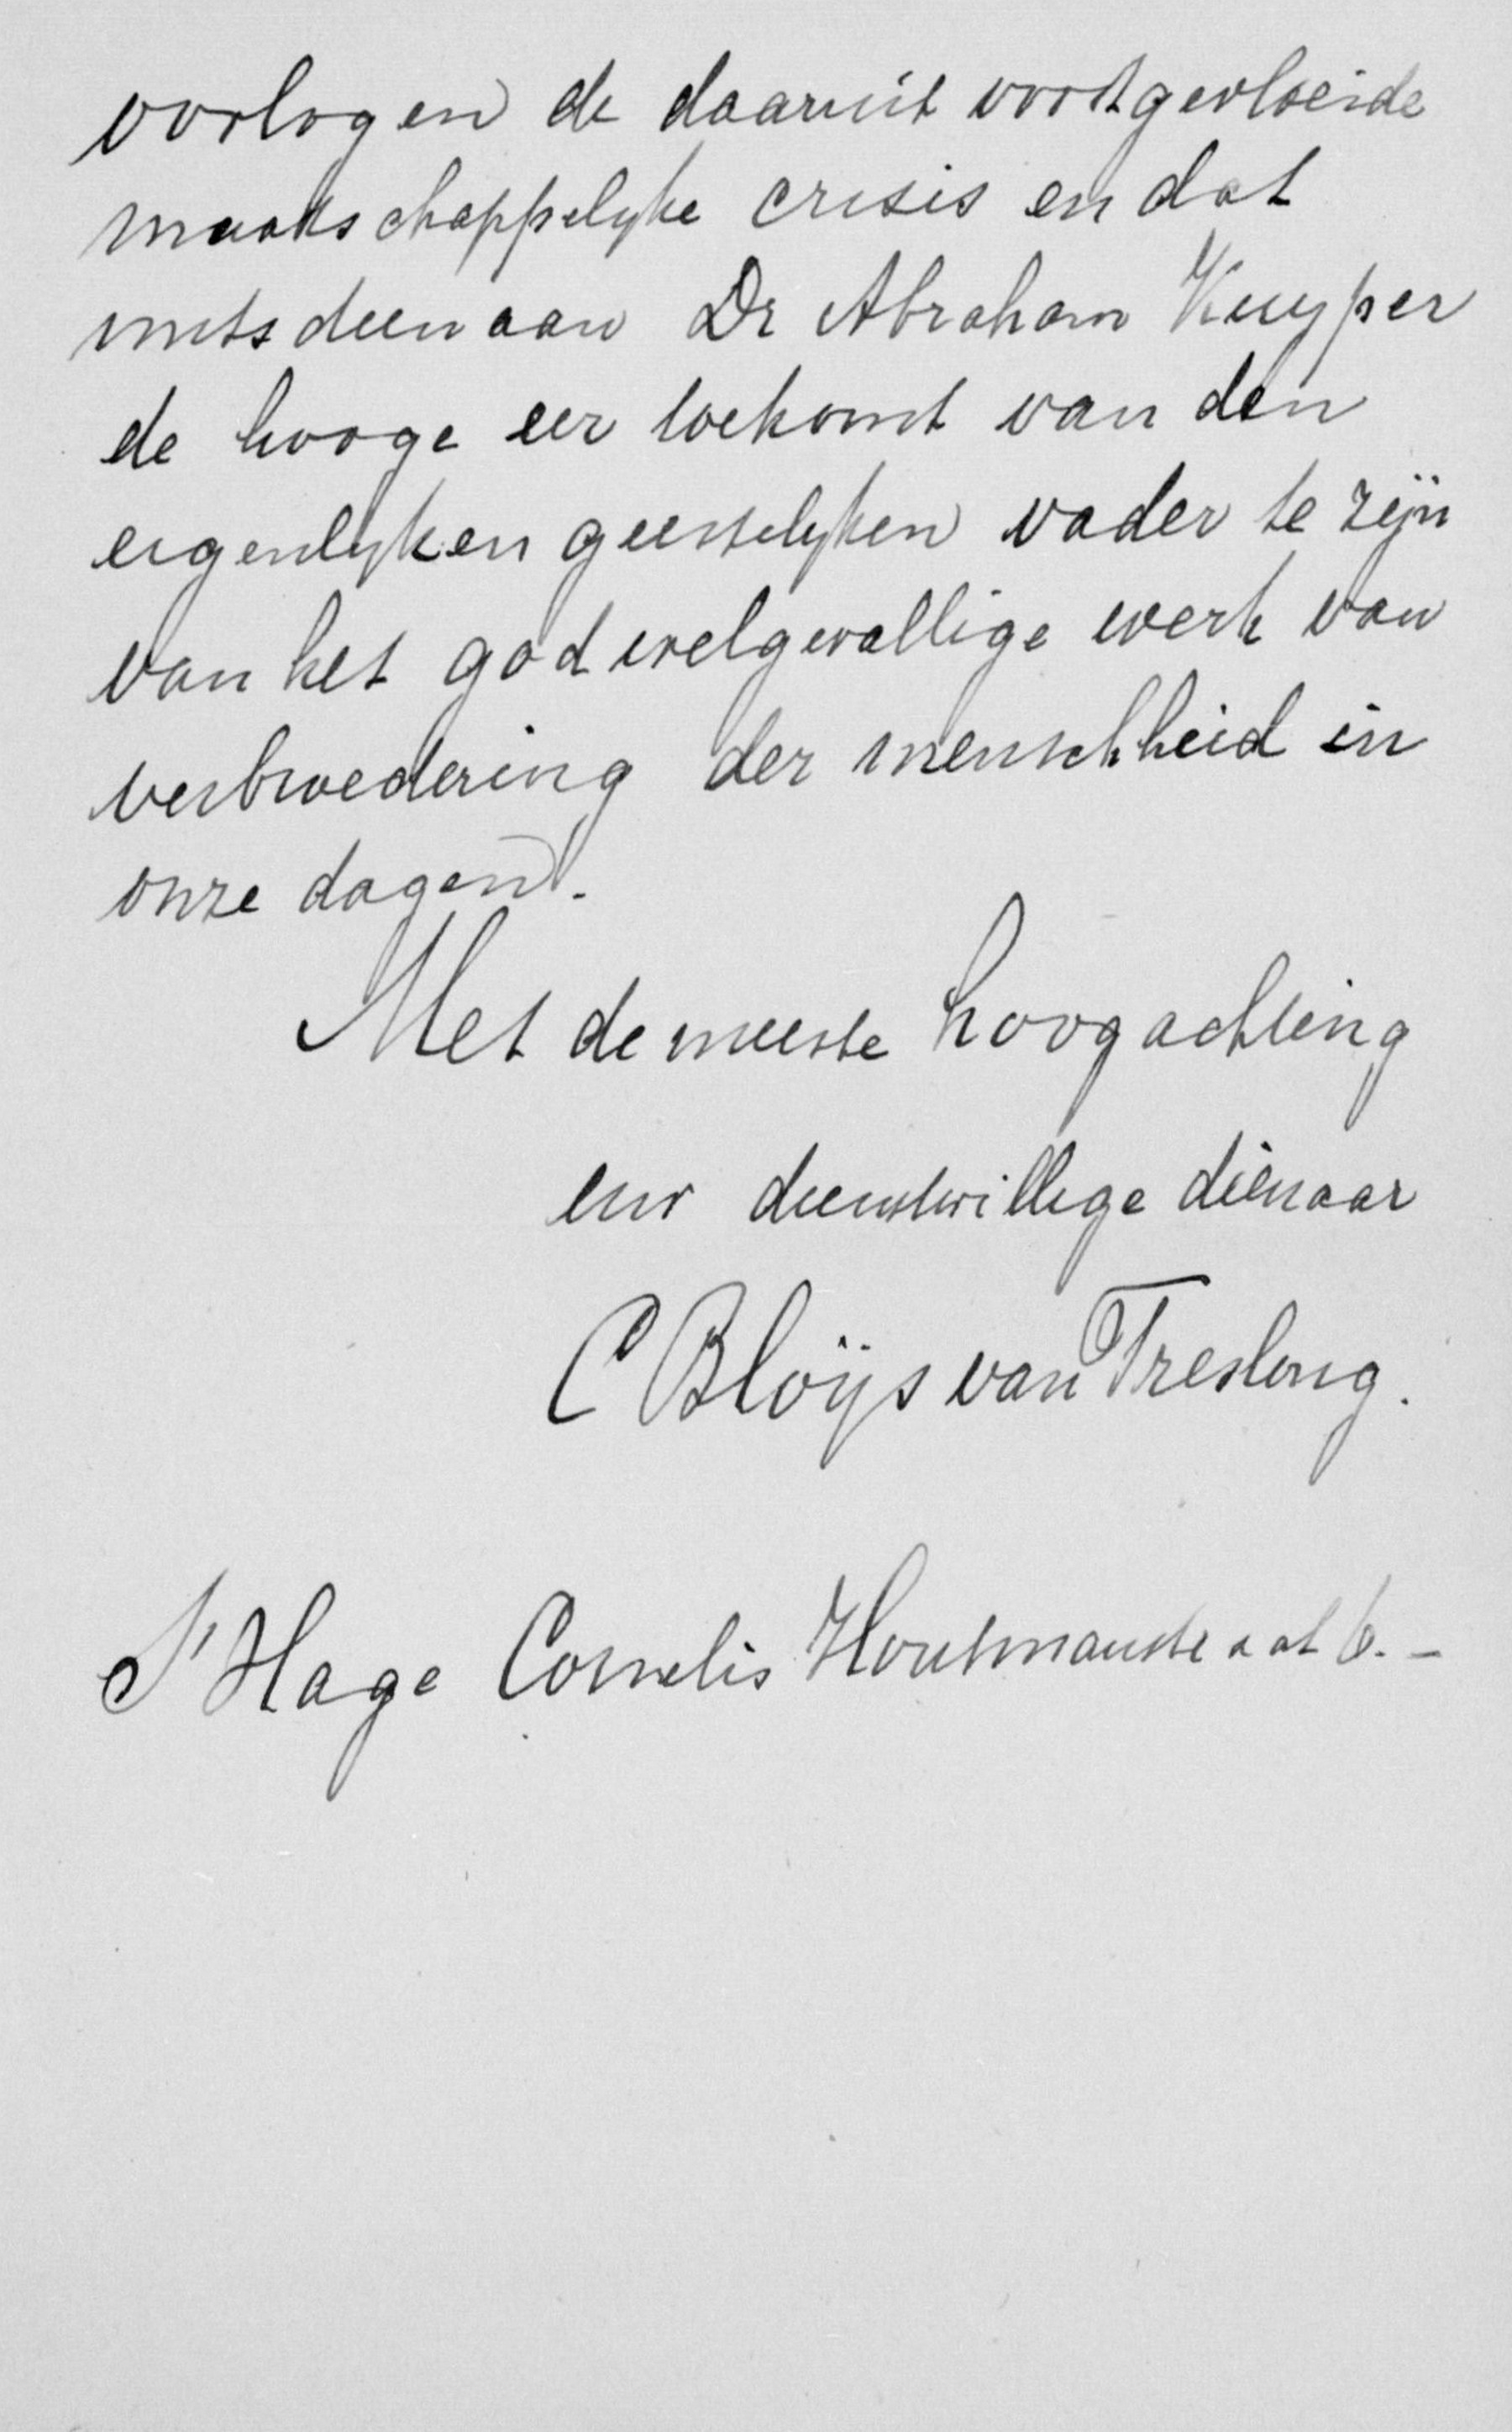 oorlog en de daaruit voortgevloeide
maatschappelyke crisis en dat
mitsdien aan Dr Abraham Kuyper
de hooge eer toekomt van den
eigenlyken geestelyken vader te zijn
van het god welgevallige werk van
verbroedering der menschheid in
onze dagen.
Met de meeste hoogachting
uw dienstwillige dienaar
C Bloÿs van Treslong.
S'Hage Cornelis Houtmanstraat 6.-